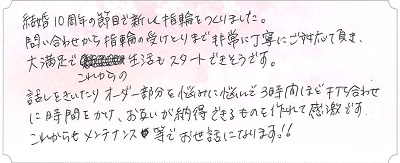 結婚10周年の節目で新しく指輪をつくりました。
問い合わせから指輪の受けとりまで非常に丁寧にご対応て頂き、
大満足で 生活もスタートできそうです。
これからの
話しをきいたりオーダー部分を悩みに悩んで3時間ほど打ち合わせ
に時間をかけ、お互いが納得できるものを作れて感激です。
これからもメンテナンス等でお世話になります!!